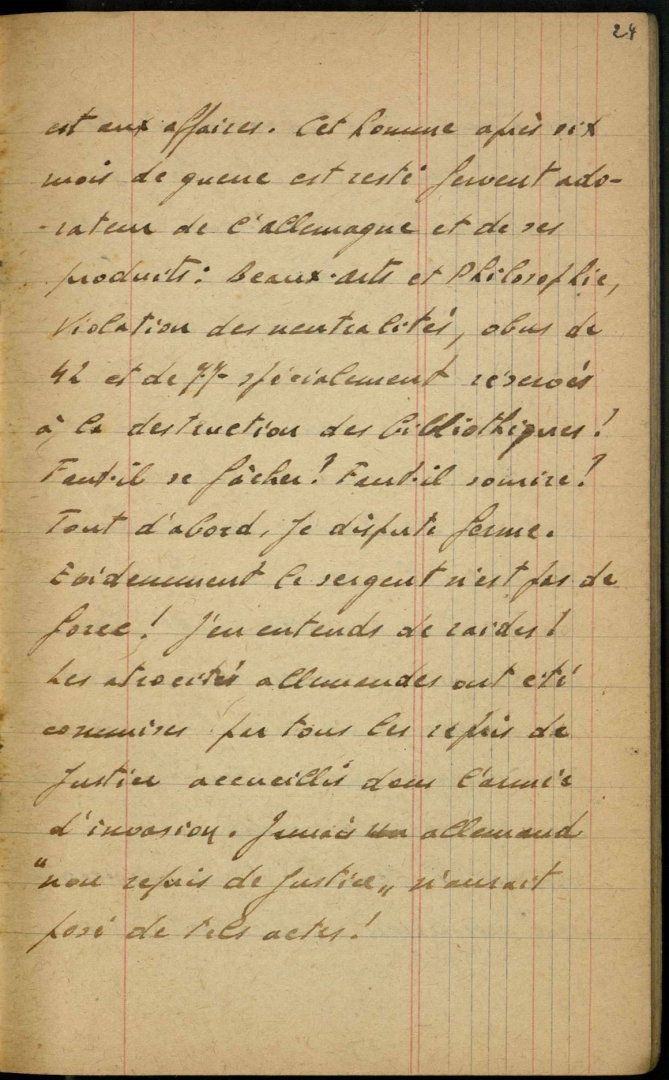 24
est aux affaires. Cet homme après six
mois de guerre est resté fervent ado-
-rateur de l'allemagne et de ses
produits: Beaux-arts et Philosophie,
Violation des neutralités, obus de
42 et de 77 spécialement réservés
à la destruction des bibliothèques!
Faut-il se fâcher? Faut-il sourire?
Tout d'abord, je dispute ferme.
Evidemment le sergent n'est pas de
force! J'en entends de raides!
Les atrocités allemandes ont été
commises par tous les repris de
Justice accueillis dans l'armée
d'invasion. Jamais un allemand
"non repris de Justice" n'aurait
posé de tels actes!